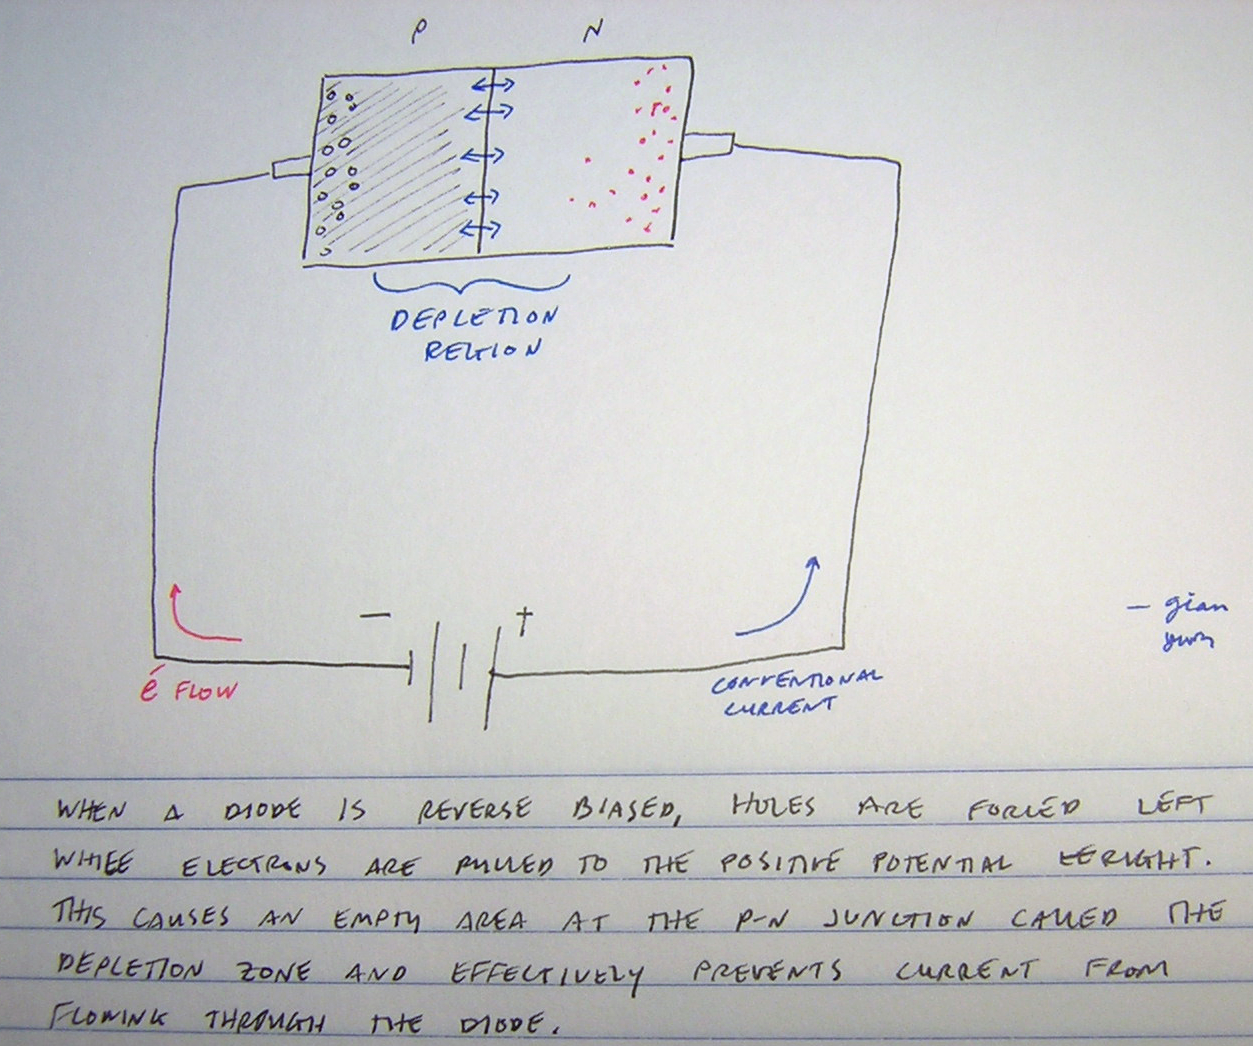 P N
DEPLETION
REGION
- +
é FLOW
CONVENTIONAL
CURRENT
- gian
WHEN A DIODE IS REVERSE BIASED, HOLES ARE FORCED LEFT
WHILE ELECTRONS ARE PULLED TO THE POSITIVE POTENTIAL RIGHT.
THIS CAUSES AN EMPTY AREA AT THE P-N JUNCTION CALLED THE
DEPLETION ZONE AND EFFECTIVELY PREVENTS CURRENT FROM
FLOWING THROUGH THE DIODE.